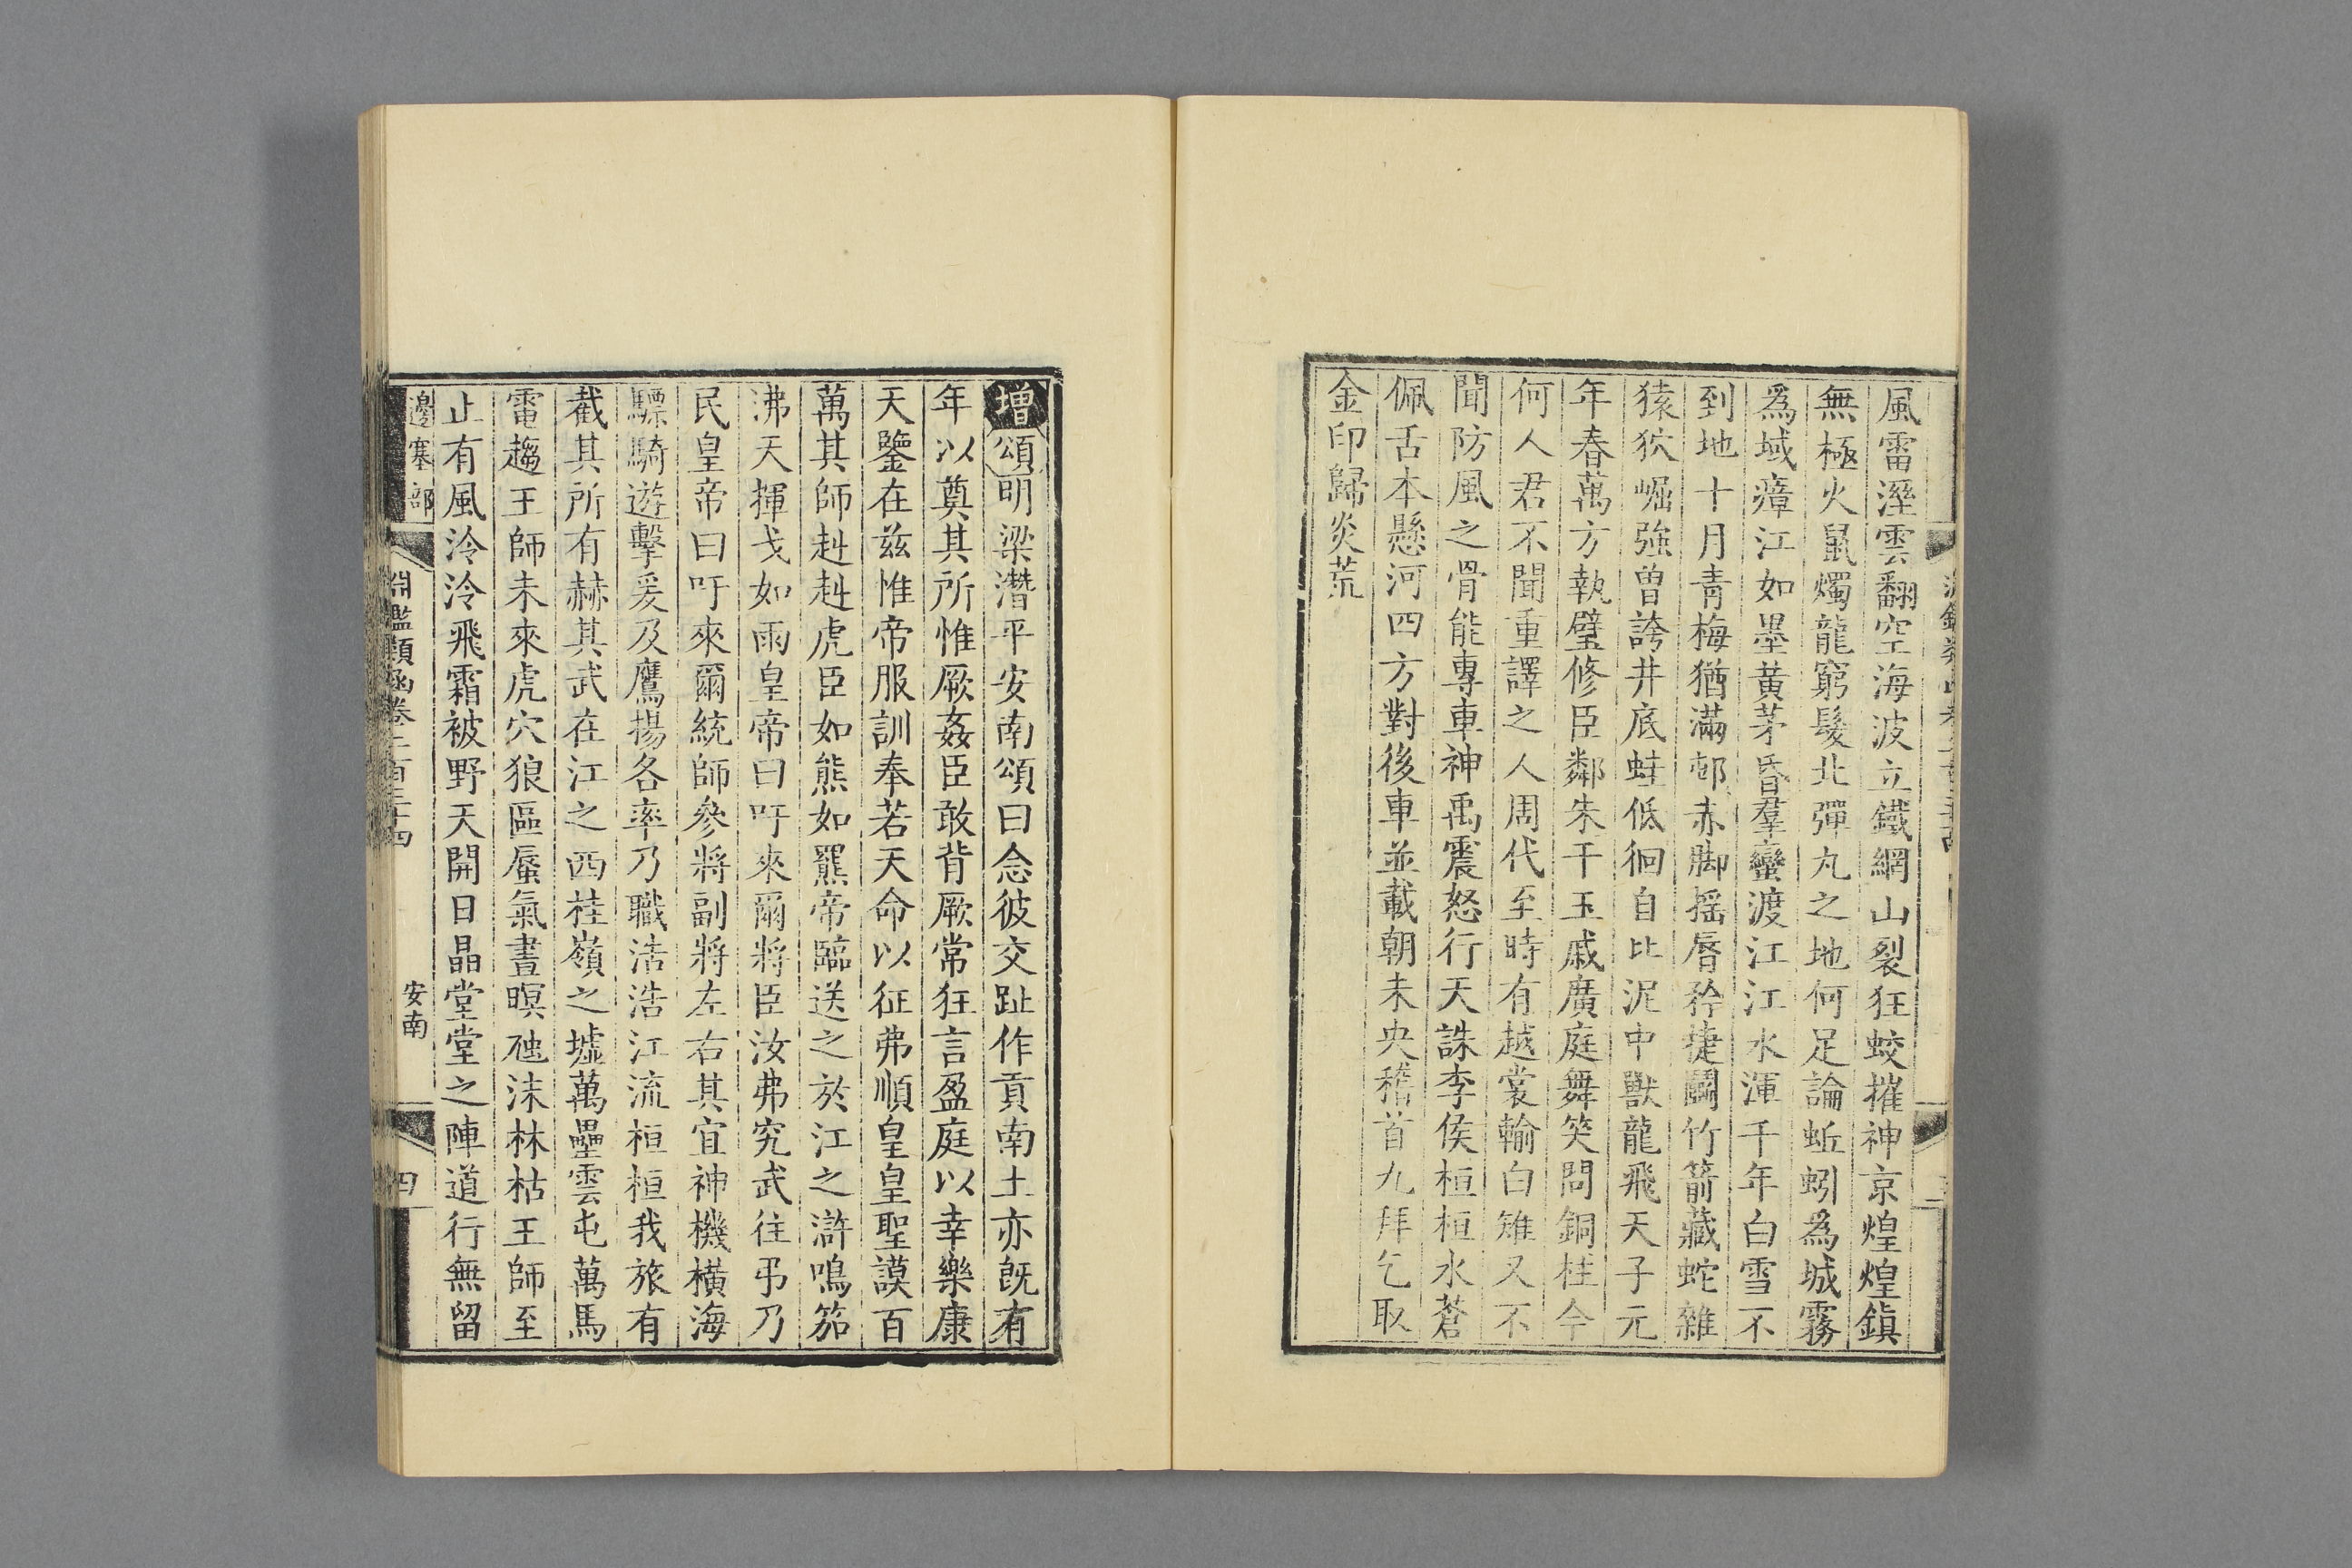 風雷溼雲翻空海波立鐵網山裂狂蛟摧神京煌煌鎮
無極火鼠燭龍窮髮北彈丸之地何足論蚯蚓爲城霧
爲域瘴江如墨黄茅昏羣蠻渡江江水渾千年白雪不
到地十月青梅猶滿邨赤脚摇脣矜捷鬭竹箭藏蛇雜
猿狖崛強曽誇井底蛙低徊自比泥中獸龍飛天子元
年春萬方執璧修臣鄰朱干玉戚廣庭舞笑問銅柱今
何人君不聞重譯之人周代至時有越裳輸白雉又不
聞防風之骨能專車神禹震怒行天誅李侯桓桓水蒼
佩舌本懸河四方對後車並載朝未央稽首九拜乞取
金印歸炎荒
增頌明梁潛平安南頌曰念彼交趾作貢南土亦既有
年以奠其所惟厥姦臣敢背厥常狂言盈庭以幸樂康
天鑒在兹惟帝服訓奉若天命以征弗順皇皇聖謨百
萬其師赳赳虎臣如熊如羆帝臨送之於江之滸鳴笳
沸天揮戈如雨皇帝曰吁來爾將臣汝弗究武往弔乃
民皇帝曰吁來爾統師參將副將左右其宜神機横海
驃騎遊擊爰及鷹揚各率乃職浩浩江流桓桓我旅有
截其所有赫其武在江之西桂嶺之墟萬壘雲屯萬馬
電趨王師未來虎穴狼區蜃氣晝暝虺沫林枯王師至
止有風泠泠飛霜被野天開日晶堂堂之陣道行無留
邊塞部
淵鑑類函卷二百三十四
安南
四